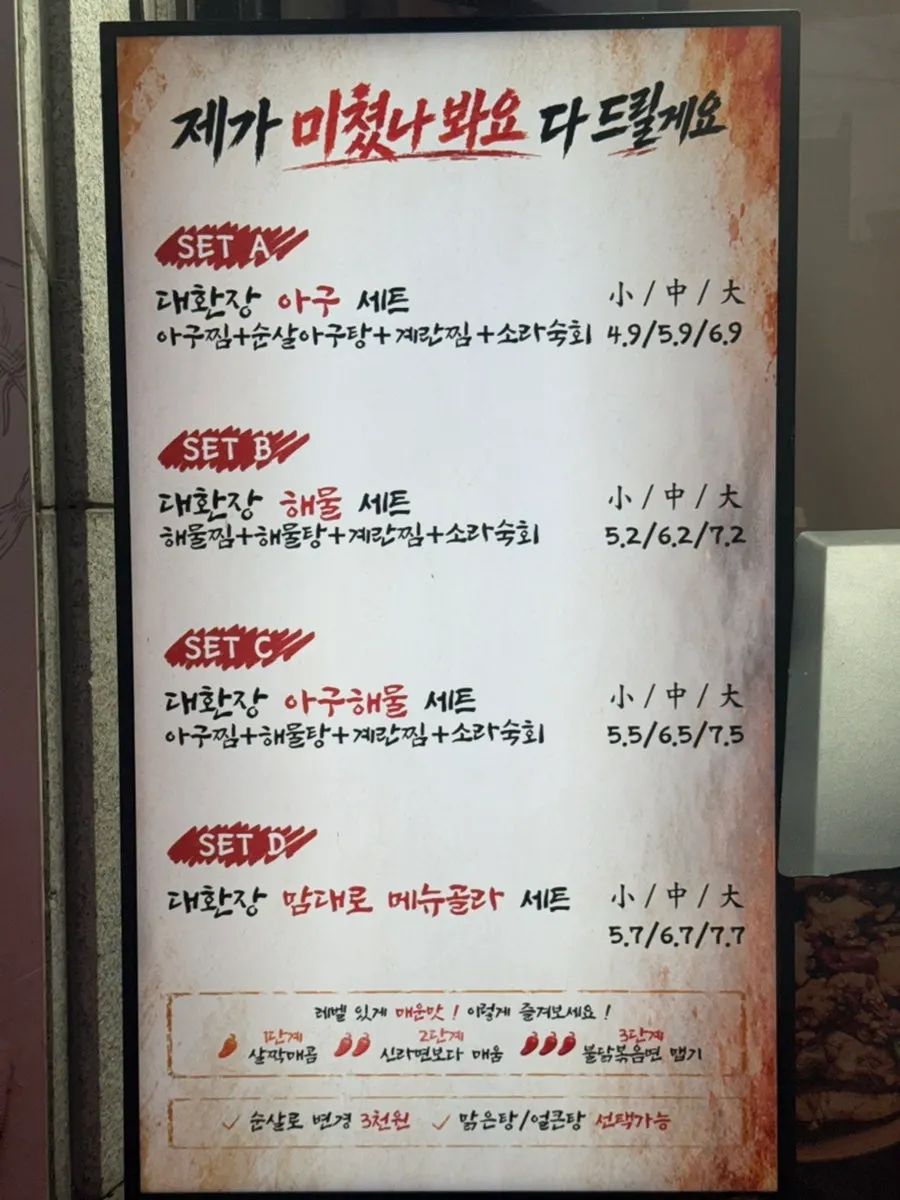 제가 미쳤나 봐요 다 드릴게요
SET A
대환장 아구 세트 小 / 中 / 大
아구찜+순살아구탕+계란찜+소라숙회 4.9/5.9/6.9
SET B
대환장 해물 세트 小 / 中 / 大
해물찜+해물탕+계란찜+소라숙회 5.2/6.2/7.2
SET C
대환장 아구해물 세트 小 / 中 / 大
아구찜+해물탕+계란찜+소라숙회 5.5/6.5/7.5
SET D
대환장 맘대로 메뉴골라 세트 小 / 中 / 大
5.7/6.7/7.7
레벨 있게 매운맛 ! 이렇게 즐겨보세요 !
1단계 2단계 3단계
살짝매콤 신라면보다 매움 불닭볶음면 맵기
순살로 변경 3천원 맑은탕/얼큰탕 선택가능